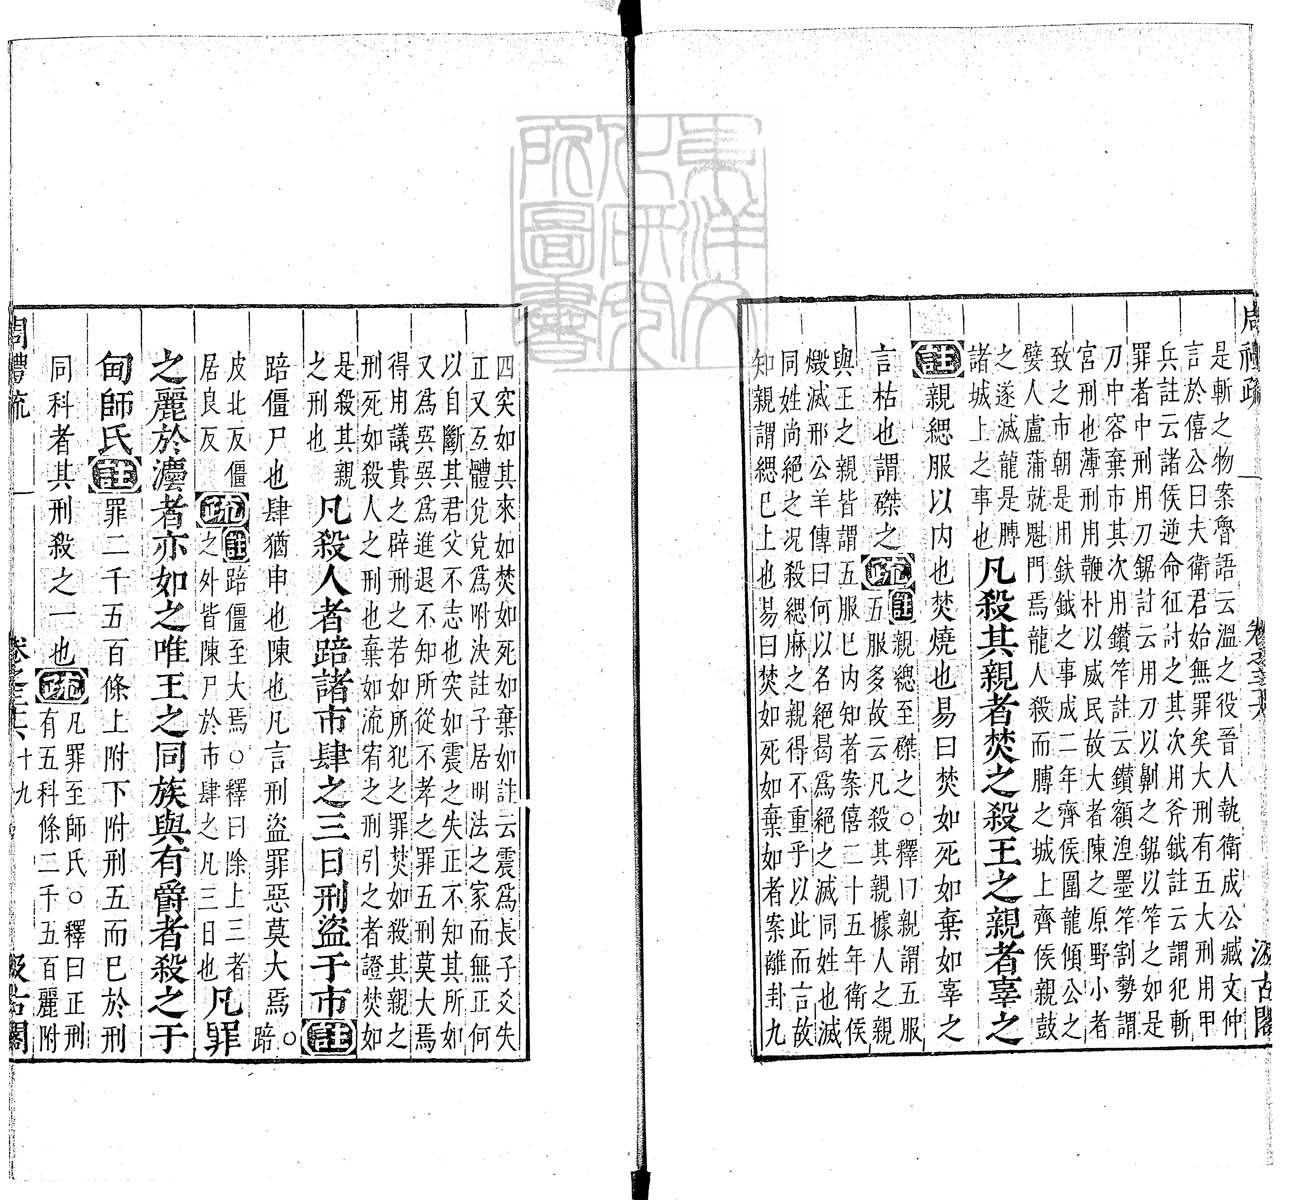 周禮疏
卷之三十六
汲古閣
是斬之物案魯語云溫之役晉人執衛成公臧文仲
言於僖公曰夫衛君始無罪矣大刑有五大刑用甲
兵註云諸侯逆命征討之其次用斧鉞註云謂犯斬
罪者中刑用刀鋸註云用刀以劓之鋸以笮之如是
刀中容棄市其次用鑽笮註云鑽額涅墨笮割勢謂
宮刑也薄刑用鞭朴以威民故大者陳之原野小者
致之市朝是用鈇鉞之事成二年齊侯圍龍傾公之
嬖人盧蒲就魁門焉龍人殺而膊之城上齊侯親鼓
之遂滅龍是膊
諸城上之事也凡殺其親者焚之殺王之親者辜之
註親緦服以内也焚燒也易曰焚如死如棄如辜之
言枯也謂磔之疏註親緦至磔之○釋曰親謂五服
五服多故云凡殺其親據人之親
與王之親皆謂五服已内知者案僖二十五年衛侯
燬滅邢公羊傳曰何以名絕曷爲絕之滅同姓也滅
同姓尚絕之况殺緦麻之親得不重乎以此而言故
知親謂緦已上也昜曰焚如死如棄如者案離卦九
四突如其來如焚如死如棄如註云震爲長子爻失
正又互體兌兌爲附決註子居明法之家而無正何
以自斷其君父不志也突如震之失正不知其所如
又爲巽巽爲進退不知所從不孝之罪五刑莫大焉
得用議貴之辟刑之若如所犯之罪焚如殺其親之
刑死如殺人之刑也棄如流宥之刑引之者證焚如
是殺其親
之刑也凡殺人者踣諸市肆之三日刑盜于市註
踣僵尸也肆猶申也陳也凡言刑盜罪惡莫大焉○踣
皮北反僵
居良反疏註踣僵至大焉○釋曰除上三者
之外皆陳尸於市肆之凡三日也凡罪
之麗於灋者亦如之唯王之同族與有爵者殺之于
甸師氏註罪二千五百條上附下附刑五而已於刑
同科者其刑殺之一也疏凡罪至師氏○釋曰正刑
有五科條二千五百麗附
周禮疏
卷之三十六
十九
汲古閣
東洋文
化研究
所圖書